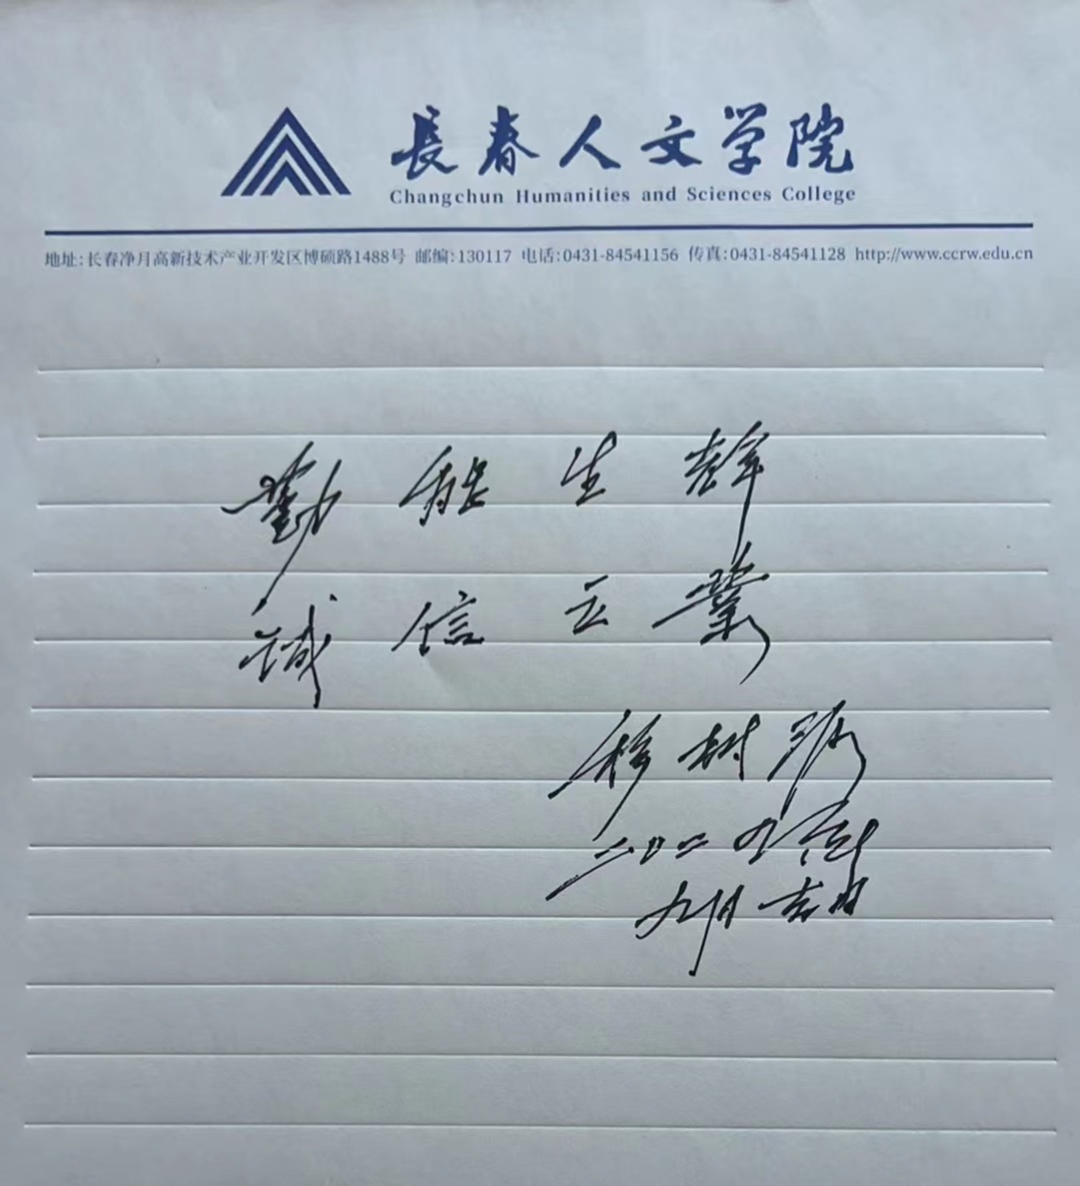 長春人文学院
Changchun Humanities and Sciences College
地址:长春净月高新技术产业开发区博硕路1488号 邮编:130117 电话:0431-84541156 传真:0431-84541128 http://www.ccrw.edu.cn
勤能生辉
誠信立業
穆树
二〇二四年
九月吉日